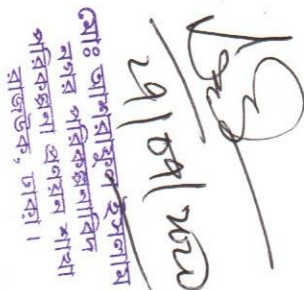 মোঃ আশরাফুল ইসলাম
নগর পরিকল্পনাবিদ
পরিকল্পনা প্রণয়ন শাখা
রাজউক, ঢাকা।